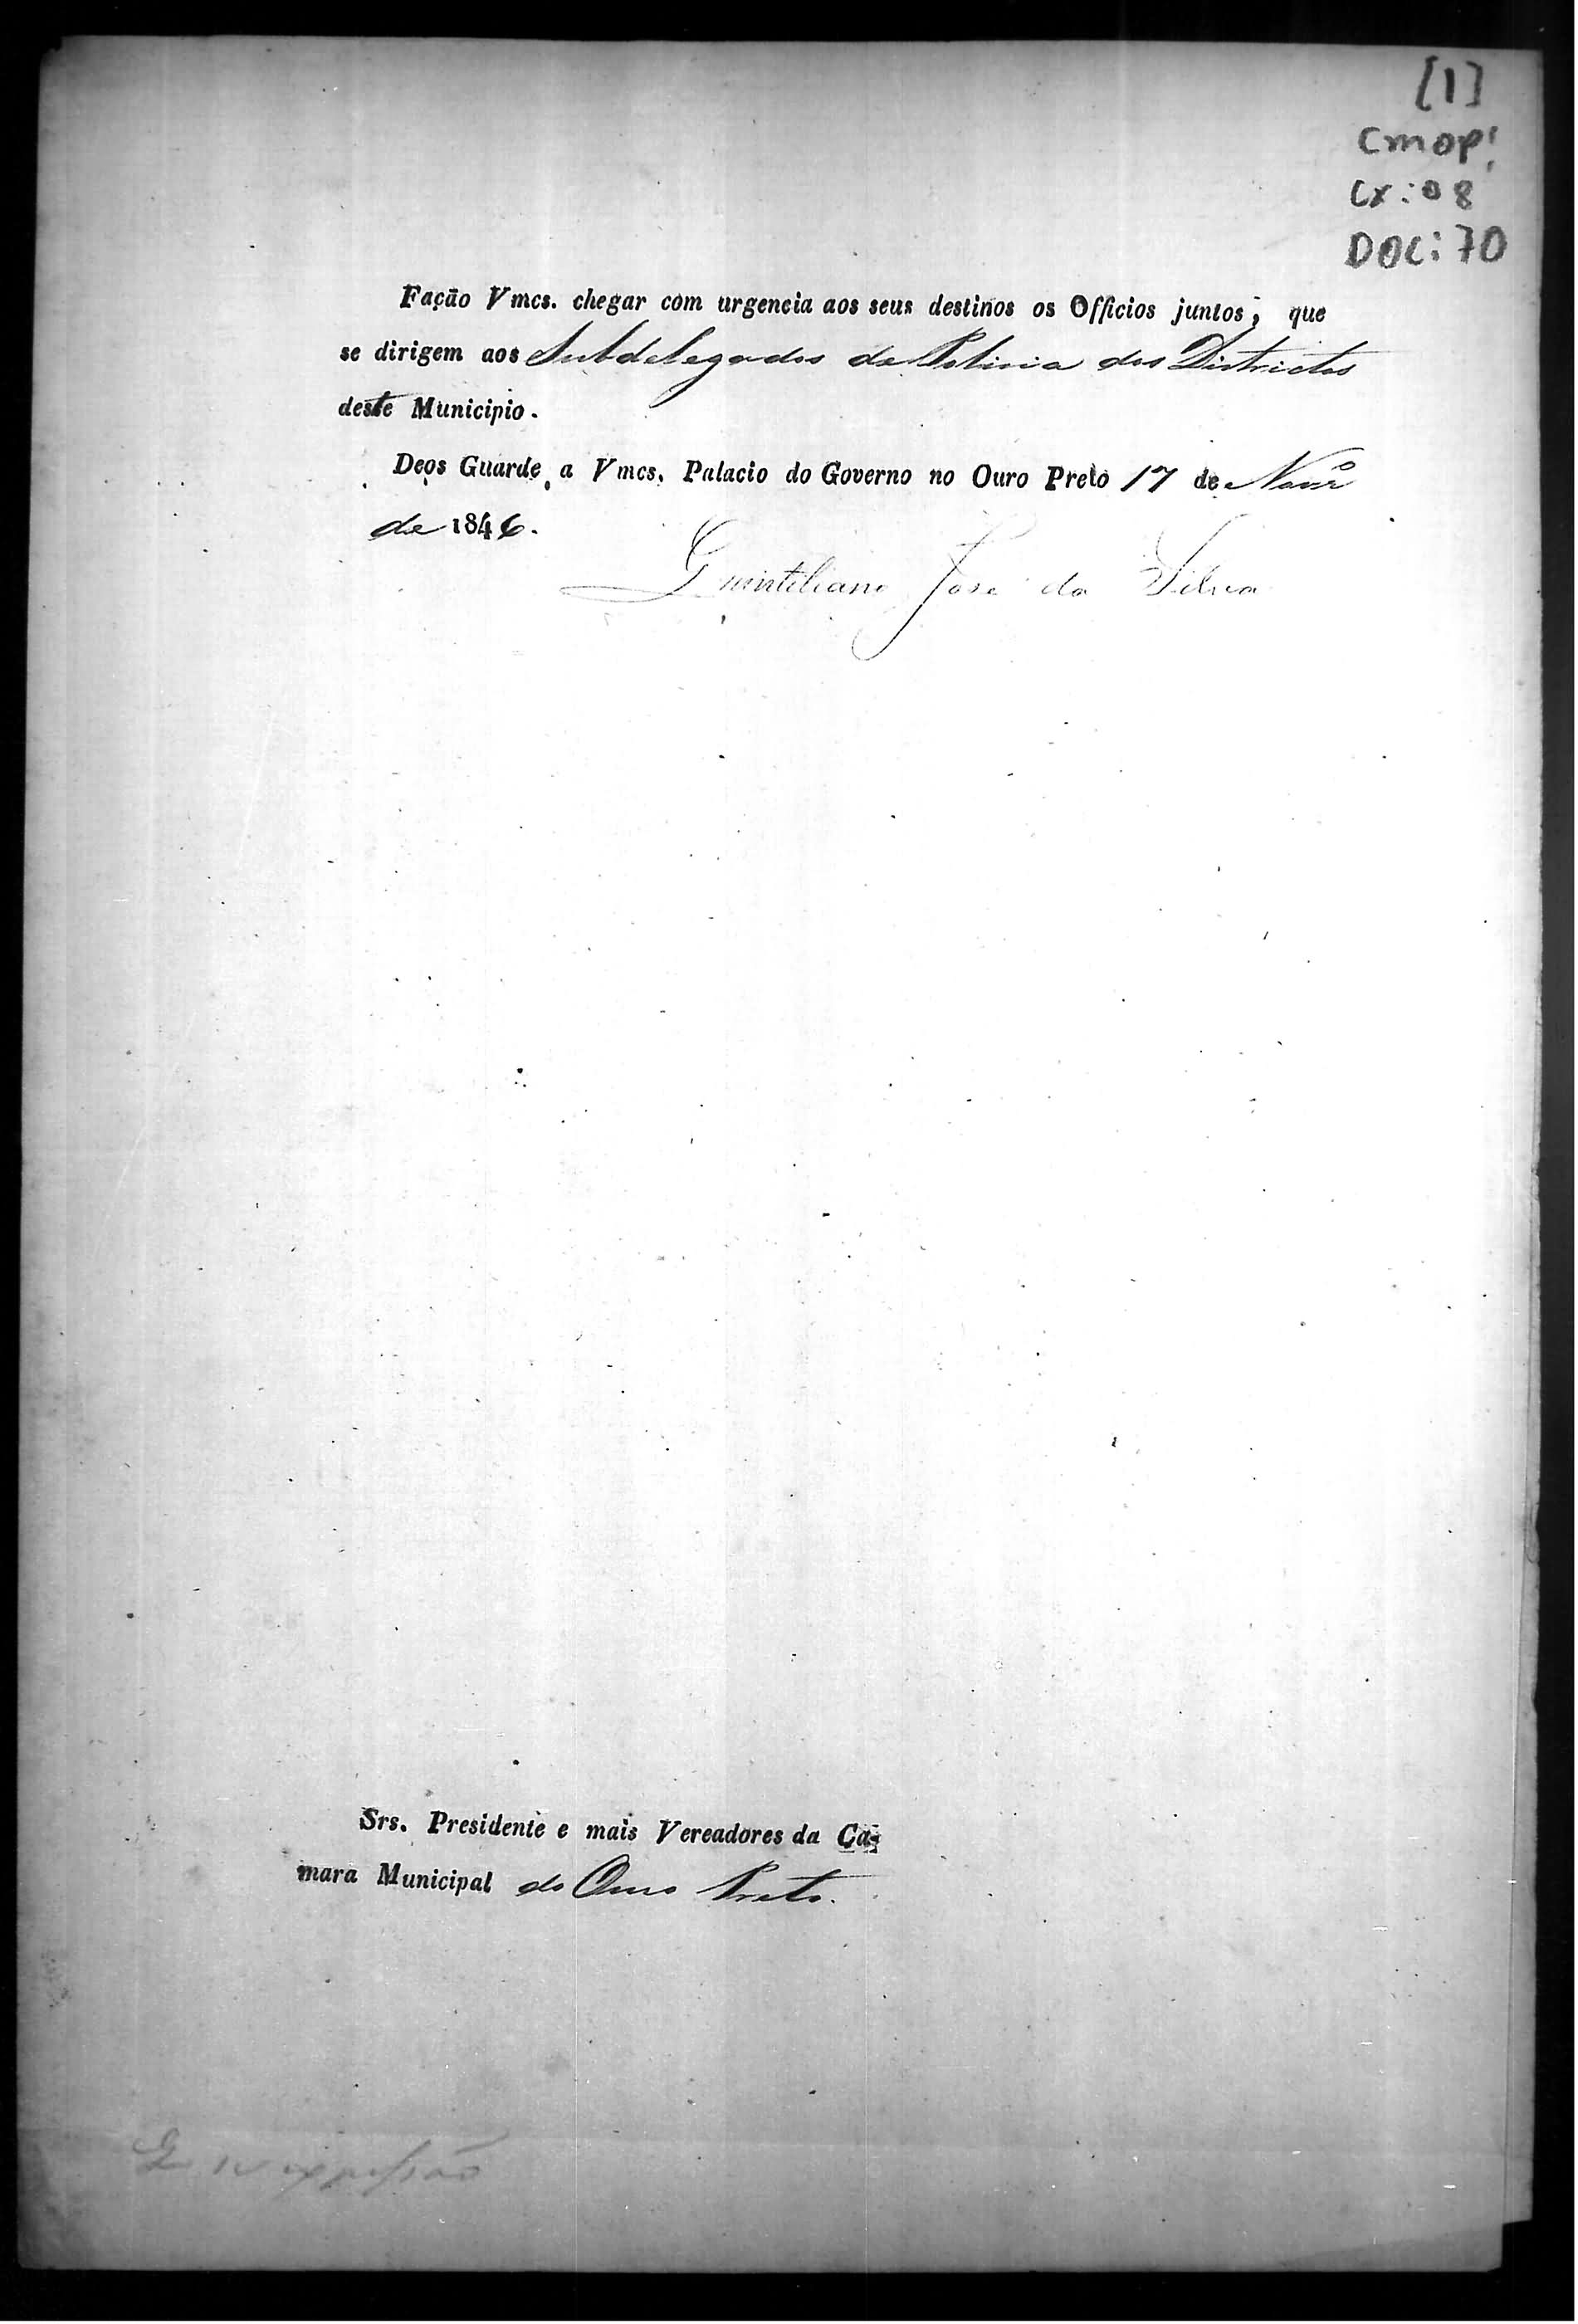 [1]
CMOP.
CX: 08
DOC: 70
Fação Vmcs. chegar com urgencia aos seus destinos os Officios juntos, que
se dirigem aos Subdelegados de Policia dos Districtos
deste Municipio.
Deos Guarde a Vmcs. Palacio do Governo no Ouro Preto 17 de Novr.º
de 1846.
Quintiliano José da Silva
Srs. Presidente e mais Vereadores da Ca-
mara Municipal do Ouro Preto.